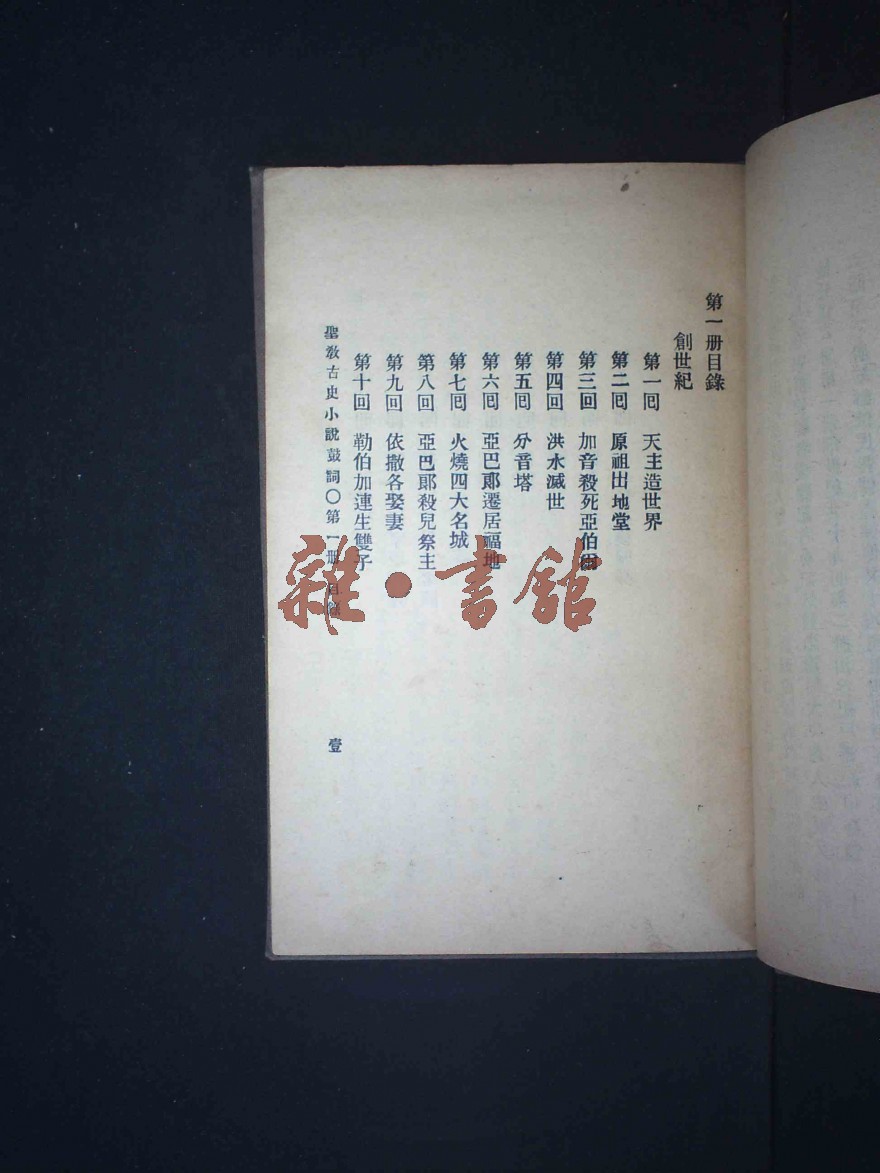 第一册目錄
創世紀
第一回 天主造世界
第二回 原祖出地堂
第三回 加音殺死亞伯爾
第四回 洪水滅世
第五回 分音塔
第六回 亞巴郎遷居福地
第七回 火燒四大名城
第八回 亞巴郎殺兒祭主
第九回 依撒各娶妻
第十回 勒伯加連生雙子
聖教古史小說鼓詞〇第一册 目錄
壹
雜·書館